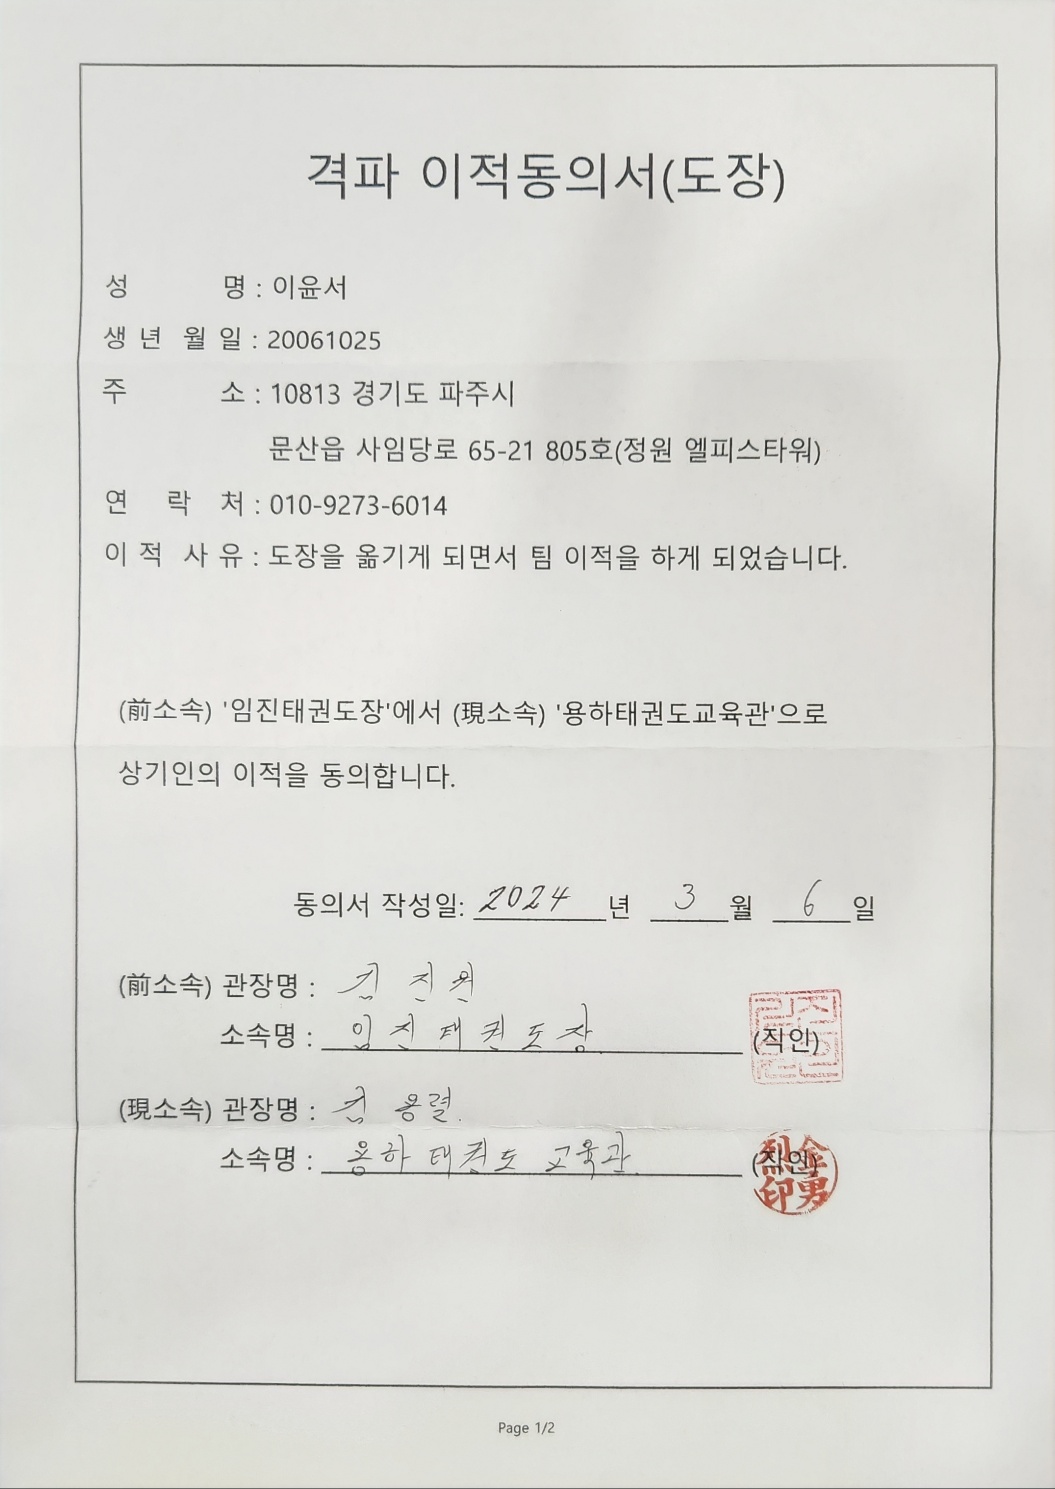 격파 이적동의서(도장)
성 명 : 이윤서
생 년 월 일 : 20061025
주 소 : 10813 경기도 파주시
문산읍 사임당로 65-21 805호(정원 엘피스타워)
연 락 처 : 010-9273-6014
이 적 사 유 : 도장을 옮기게 되면서 팀 이적을 하게 되었습니다.
(前소속) '임진태권도장'에서 (現소속) '용하태권도교육관'으로
상기인의 이적을 동의합니다.
동의서 작성일: 2024 년 3 월 6 일
(前소속) 관장명 : 김 진원
소속명 : 임진태권도장 (직인)
(現소속) 관장명 : 김 용렬.
소속명 : 용하 태권도 교육관. (직인)
Page 1/2